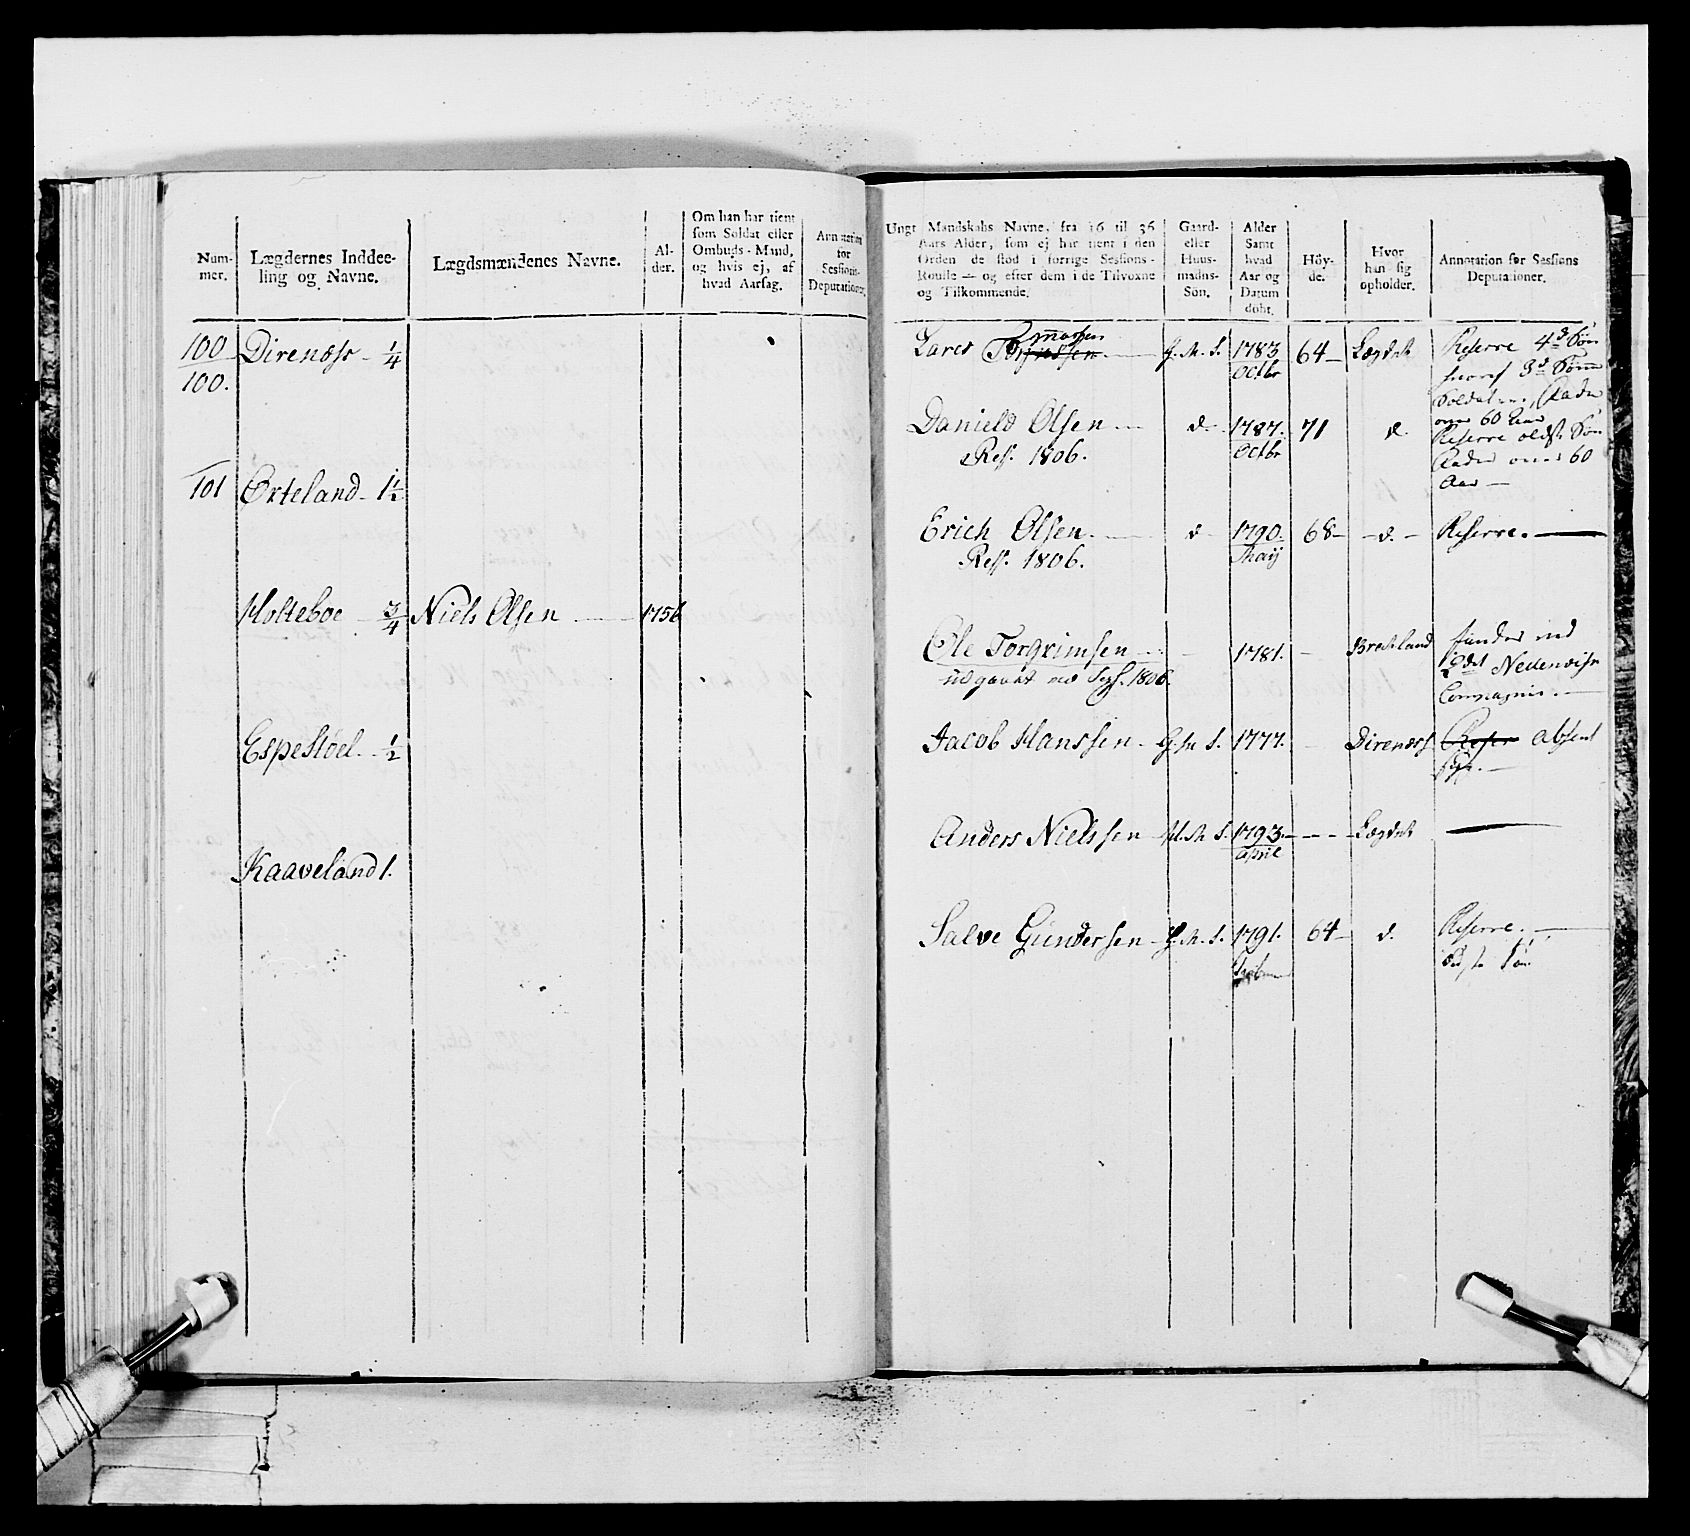 Num-
mer.
Lægdernes Inddee-
ling og Navne.
Lægdsmændenes Navne.
Al-
der.
Om han har tient
som Soldat eller
Ombuds-Mand,
og hvis ej, af
hvad Aarsag.
Annotation
for
Sessions-
Deputationer.
100 Direnæss - 1/4
100.
101 Örteland - 1 1/2
Holteboe - 3/4 Niels Olsen 1756
Espestöel - 1/2
Kaaveland 1.
Ungt Mandskabs Navne, fra 16 til 36
Aars Alder, som ej har tient i den
Orden de stod i forrige Sessions-
Roulle — og efter dem i de Tilvoxne
og Tilkommende.
Gaard-
eller
Huus-
mands-
Sön.
Alder
Samt
hvad
Aar og
Datum
döbt.
Höy-
de.
Hvor
han sig
opholder.
Annotation før Sessions
Deputationer.
Lars 1783 64 - Lægdet Reserve 4de Søn
Octbr
Soldat
over 60 Aar
Danield Olsen d 1787. 71 d. Reserve oldst Søn
Ress. 1806. Octbr over 60
Aar —
Erich Olsen. d 1790. 68 - d. - Reserve.
Ress. 1806. Maij
Ole Torgrimsen 1781. - Bredland
udgaaet ved Sess. 1806. Nedenæiske
Compagnie. —
Jacob Hanssen - G. M. S. 1777. - Direnæss absent
Anders Nielssen H. M. S. 1793. - - - Lægdet —
April
Salve Gundersen - G. M. S. 1791. 64 - d. Reserve. —